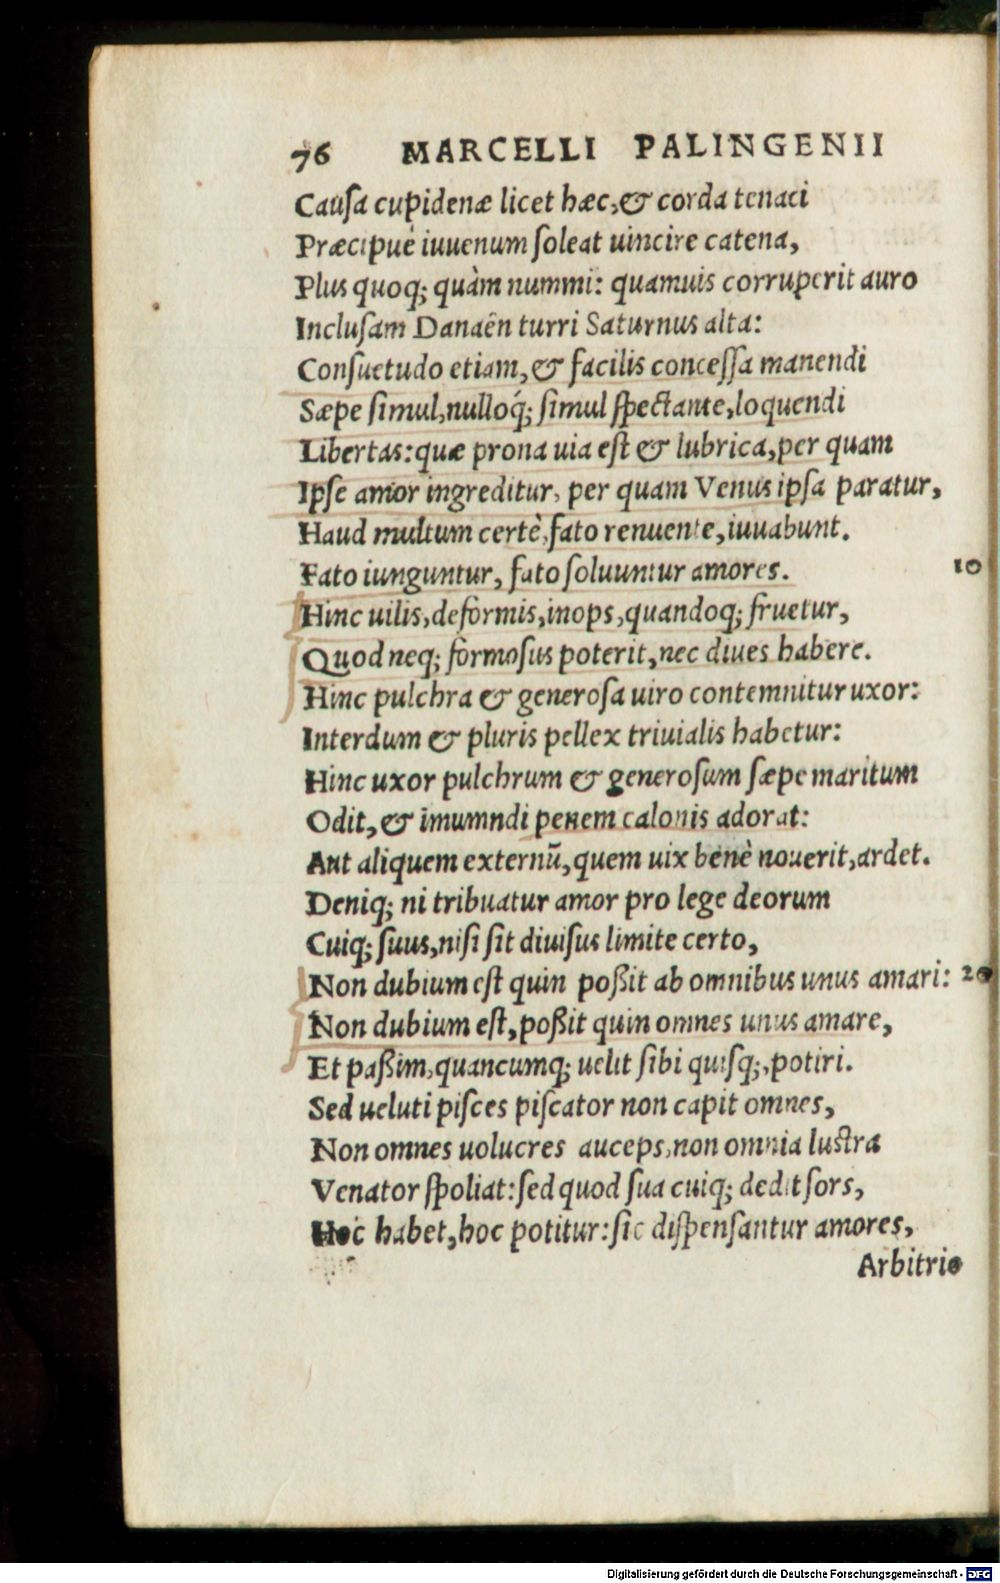 76 MARCELLI PALINGENII
Cauſa cupidenæ licet hæc, & corda tenaci
Præcipuè iuuenum ſoleat uincire catena,
Plus quoq; quàm nummi: quamuis corruperit auro
Incluſam Danaën turri Saturnus alta:
Conſuetudo etiam, & facilis conceſſa manendi
Sæpe ſimul, nulloq́; ſimul ſpectante, loquendi
Libertas: quæ prona uia eſt & lubrica, per quam
Ipſe amor ingreditur, per quam Venus ipſa paratur,
Haud multum certè, fato renuente, iuuabunt.
Fato iunguntur, fato ſoluuntur amores. 10
Hinc uilis, deformis, inops, quandoq; fruetur,
Quod neq; formoſus poterit, nec diues habere.
Hinc pulchra & generoſa uiro contemnitur uxor:
Interdum & pluris pellex triuialis habetur:
Hinc uxor pulchrum & generoſum ſæpe maritum
Odit, & imumndi penem calonis adorat:
Aut aliquem externū, quem uix benè nouerit, ardet.
Deniq; ni tribuatur amor pro lege deorum
Cuiq; ſuus, niſi ſit diuiſus limite certo,
Non dubium eſt quin poßit ab omnibus unus amari: 20
Non dubium eſt, poßit quin omnes unus amare,
Et paßim, quancumq; uelit ſibi quiſq;, potiri.
Sed ueluti piſces piſcator non capit omnes,
Non omnes uolucres auceps, non omnia luſtra
Venator ſpoliat: ſed quod ſua cuiq; dedit ſors,
Hoc habet, hoc potitur: ſic diſpenſantur amores,
Arbitrio
Digitalisierung gefördert durch die Deutsche Forschungsgemeinschaft - DFG